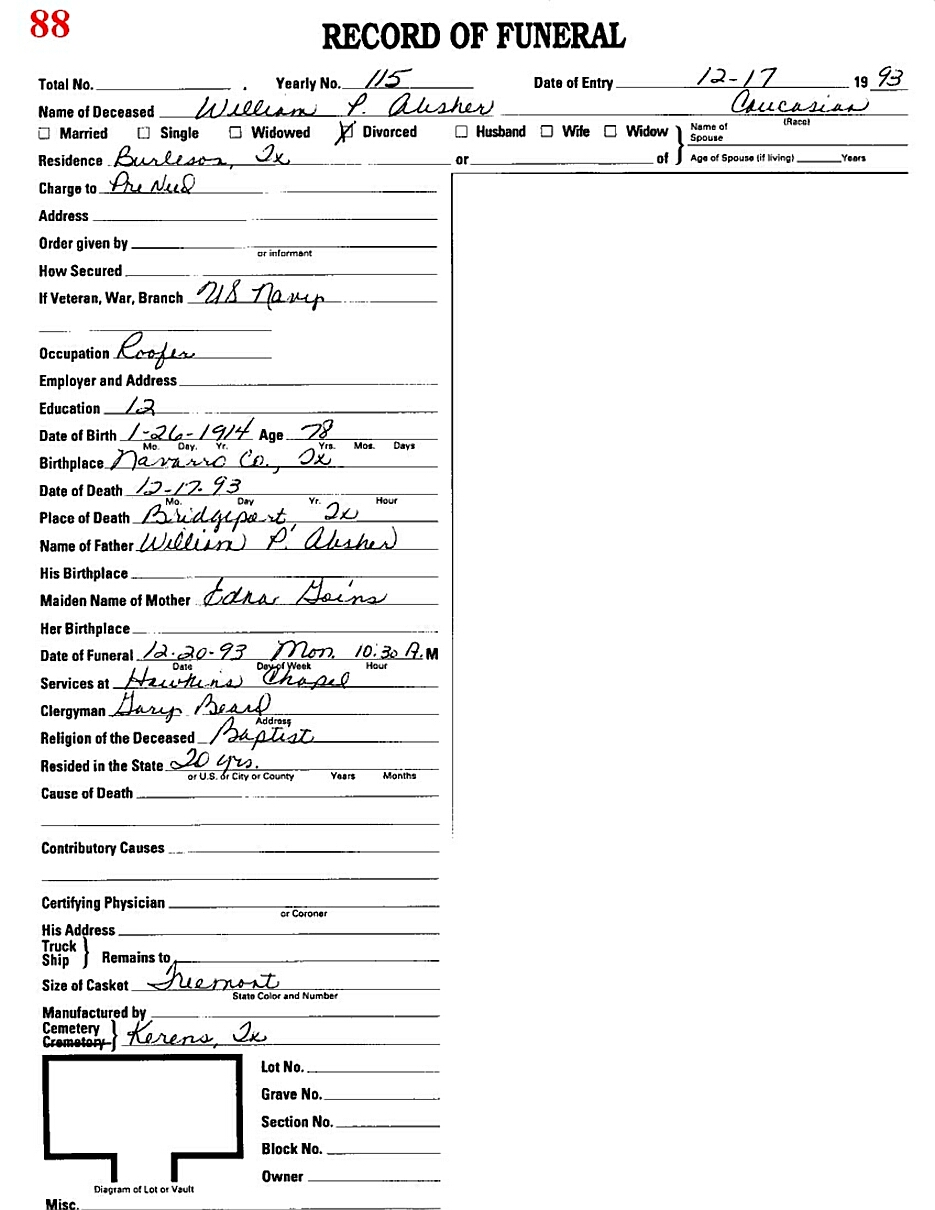 88
RECORD OF FUNERAL
Total No. Yearly No. 115 Date of Entry 12-17 19 93
Name of Deceased William P. Absher Caucasian
(Race)
☐ Married ☐ Single ☐ Widowed ☒ Divorced ☐ Husband ☐ Wife ☐ Widow } Name of Spouse
Residence Burleson, Tx or of Age of Spouse (if living) Years
Charge to Pre Need
Address
Order given by
or informant
How Secured
If Veteran, War, Branch US Navy
Occupation Roofer
Employer and Address
Education 12
Date of Birth 1-26-1914 Age 78
Mo. Day. Yr. Yrs. Mos. Days
Birthplace Navarro Co., Tx
Date of Death 12-17-93
Mo. Day Yr. Hour
Place of Death Bridgeport, Tx
Name of Father William P. Absher
His Birthplace
Maiden Name of Mother Edna Goins
Her Birthplace
Date of Funeral 12-20-93 Mon. 10:30 A.M
Date Day of Week Hour
Services at Hawkins Chapel
Clergyman Gary Beard
Address
Religion of the Deceased Baptist
Resided in the State 20 yrs.
or U.S. or City or County Years Months
Cause of Death
Contributory Causes
Certifying Physician
or Coroner
His Address
Truck
Ship } Remains to
Size of Casket Tremont
State Color and Number
Manufactured by
Cemetery
Crematory } Kerens, Tx
Lot No.
Grave No.
Section No.
Block No.
Owner
Diagram of Lot or Vault
Misc.